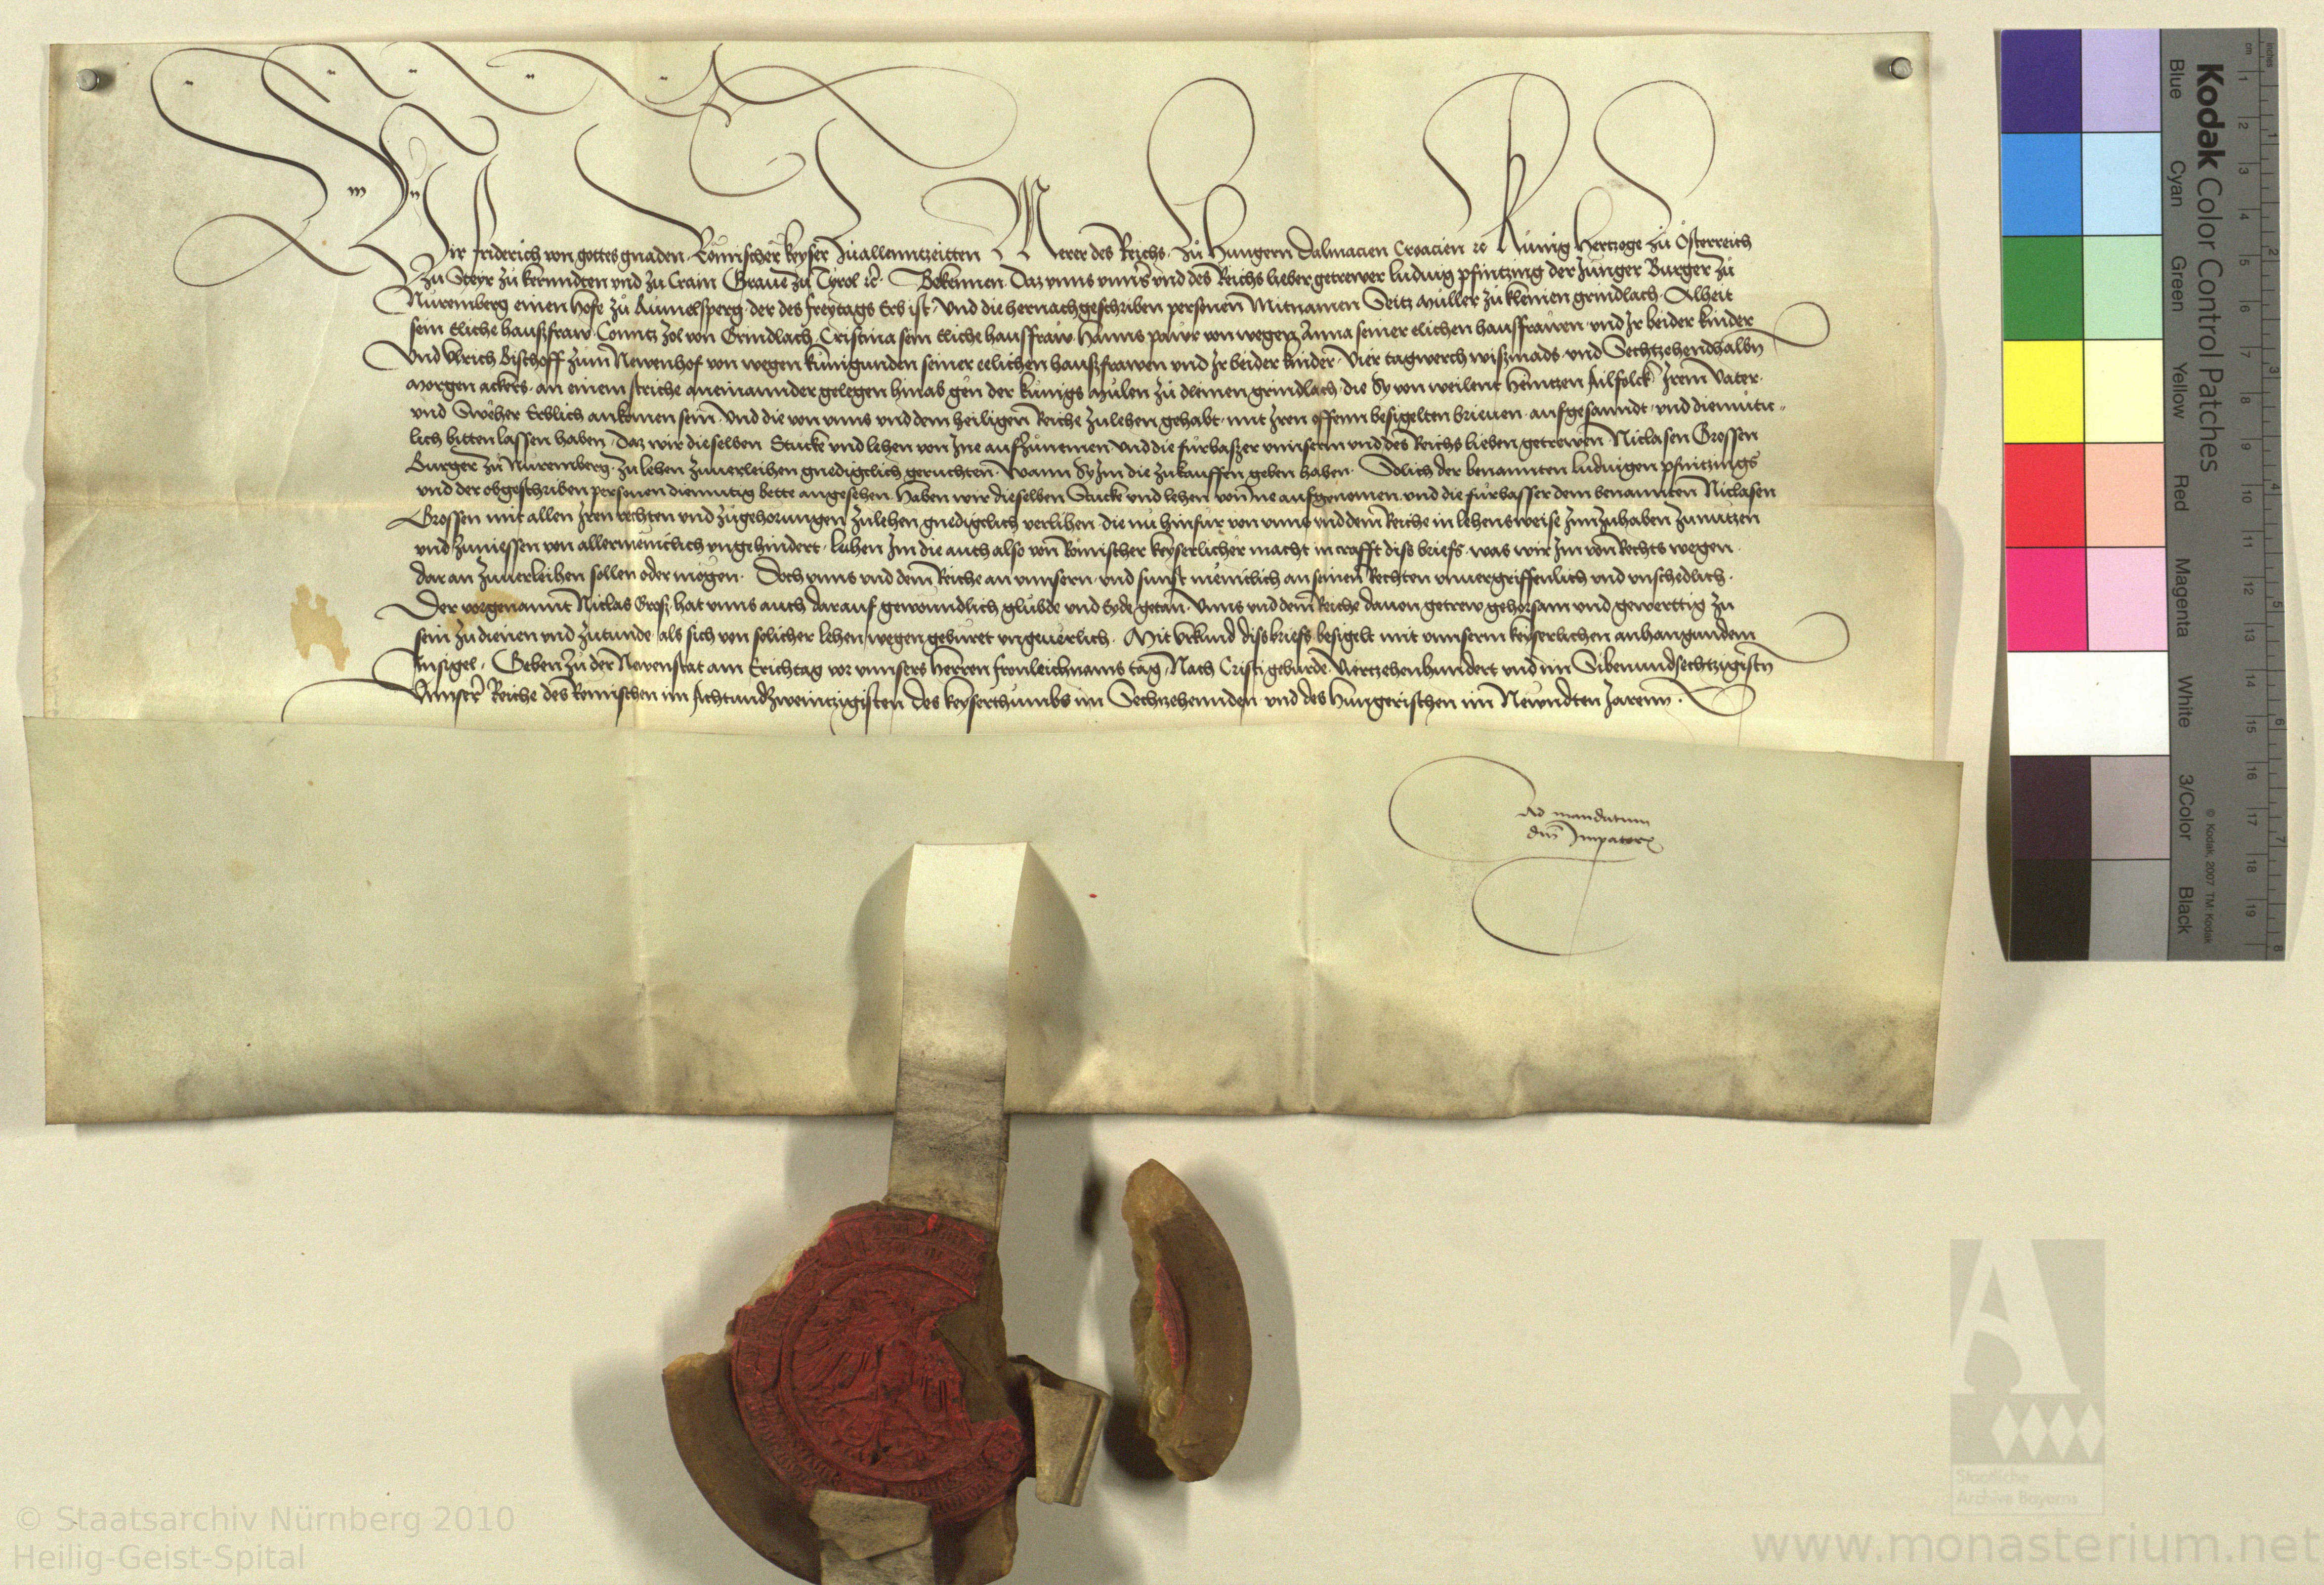 Wir Friderich von gottes gnaden Römischer keyser zuallenntzeitten Merer des Reichs zu Hungern Dalmacien Croacien ꝛc Kunig Hertzoge zu Österreich
zu Steyr zu kernndten vnd zu Crain Graue zu Tyrol ꝛc. Bekennen Daz vnns vnnser vnd des Reichs lieber getrewer ludwig pfintzing der Junger Burger zu
Nuremberg einen Hofe zu der des freytags Erb ist, vnd die hernachgeschriben personen Mitnamen Seitz Müller zu klemen grindlach Alheit
sein Eliche hausfraw Conntz Zol von Grindlach Cristina sein Eliche hausffraw Hanns pawr von wegen Anna seiner elichen hausffrawen vnd Jr beider kinder
Vnd Vlrich Bischoff zum Newenhof von wegen kunigunden seiner eelichen hauszfrawen vnd Jr beider kinder Vier tagwerch wiszmads vnd Sechtzehendhalbn
Morgen ackers an einem striche aneinannder gelegen hinab gen der kunigs Mulen zu clemen grindlach die Sy von weilent Heintzen Jrem Vater
vnd Sweher Erblich ankomen sein vnd die von vnns vnd dem heiligen Reiche zulehen gehabt mit Jren offenn besigelten brieuen aufgesanndt vnd diemutic-
lich bitten lassen haben Daz wir dieselben Stucke vnd lehen von Jne aufzunemen vnd die furbaszer vnnserm vnd des Reichs lieben getrewen Niclasen Grossen
Burger zu Nuremberg zu lehen zuuerleihen gnediglich geruchten Wann Sy Jm die zukauffen geben haben Solich der benannten ludwigen pfintzings
vnd der obgeschriben personen diemutig bette angesehen Haben wir dieselben Stucke vnd lehen von Jne aufgenomen vnd die furbasser dem benannten Niclasen
Grossen mit allen Jren rechten vnd zugehorungen zulehen gnediglich verlihen die nu hinfur von vnns vnd dem Reiche in lehensweise Jnnzuhaben zunutzen
vnd zuniessen von allermeniclich vngehindert Leihen Jm die auch also von Römischer keyserlicher macht in crafft diss briefs was wir Jm von Rechts wegen
daran zuuerleihen sollen oder mogen Doch vnns vnd dem Reiche an vnnsern vnd sunst meniclich an seinen Rechten vnuergriffenlich vnd vnschedlich
Der vorgenannt Niclas Grosz hat vnns auch darauf gewonndlich glubde vnd Eyde getan Vnns vnd dem Reiche dauon getrew gehorsam vnd gewerttig zu
sein zu dienen vnd zutunde als sich von solicher lehen wegen geburet vngeuerlich Mit Vrkund diss briefs besigelt mit vnnserm keyserlichen anhangundem
Jnsigel Geben zu der Newenstat am Erichtag vor vnnsers Herren fronleichnams tag Nach Cristi geburde Viertzehenhundert vnd im Sibenundsechtzigistn
Vnnser Reiche des Romischen im Achtundzweintzigisten des keyserthumbs im Sechzehennden vnd des Hungerischen im Newndten Jarenn
Ad mandatum
dni Imperatoris
Kodak Color Control Patches
Blue Cyan Green Yellow Red Magenta White 3/Color Black
© Kodak, 2007 TM: Kodak
cm 1 2 3 4 5 6 7 8 9 10 11 12 13 14 15 16 17 18 19
Inches 1 2 3 4 5 6 7 8
Staatliche
Archive Bayerns
© Staatsarchiv Nürnberg 2010
Heilig-Geist-Spital
www.monasterium.net